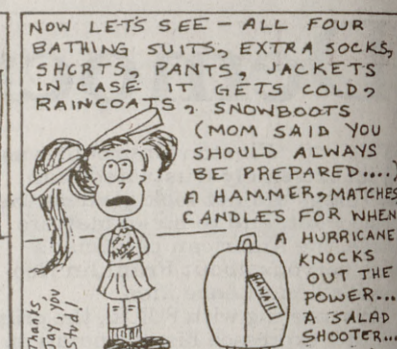 NOW LET'S SEE — ALL FOUR
BATHING SUITS, EXTRA SOCKS,
SHORTS, PANTS, JACKETS
IN CASE IT GETS COLD,
RAINCOATS, SNOWBOOTS
(MOM SAID YOU
SHOULD ALWAYS
BE PREPARED....)
A HAMMER, MATCHES
CANDLES FOR WHEN
A HURRICANE
KNOCKS
OUT THE
POWER...
A SALAD
SHOOTER...
HAWAII
Thanks,
Jay, you